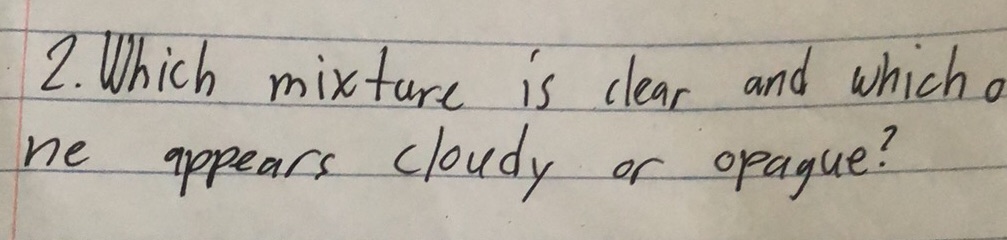 2. Which mixture is clear and which o
ne appears cloudy or opague?